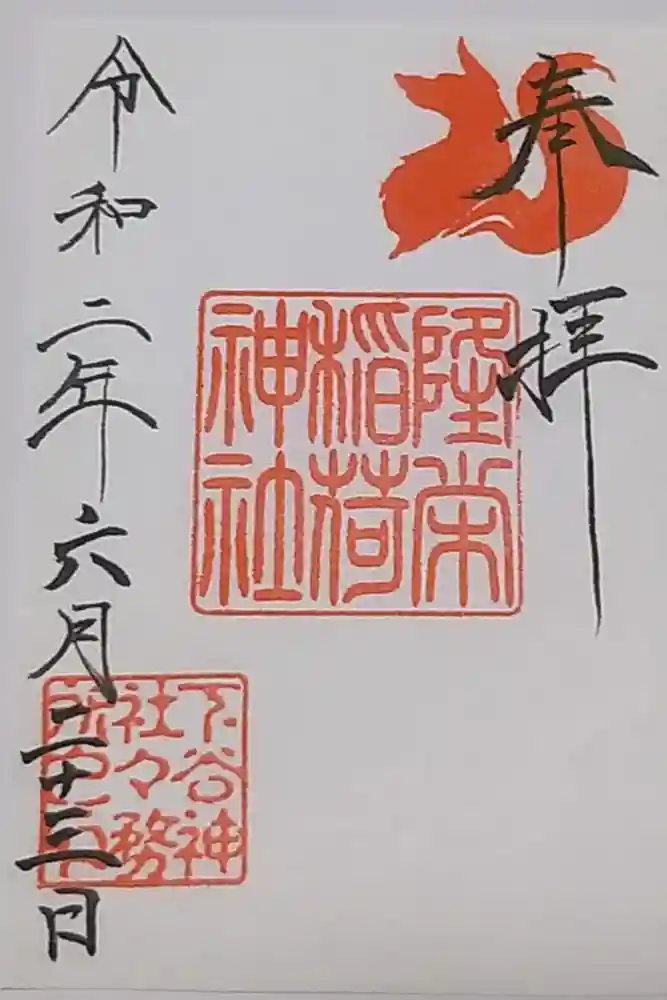 奉拝
隆栄
稲荷
神社
下谷神
社々務
所之印
令和二年六月二十三日